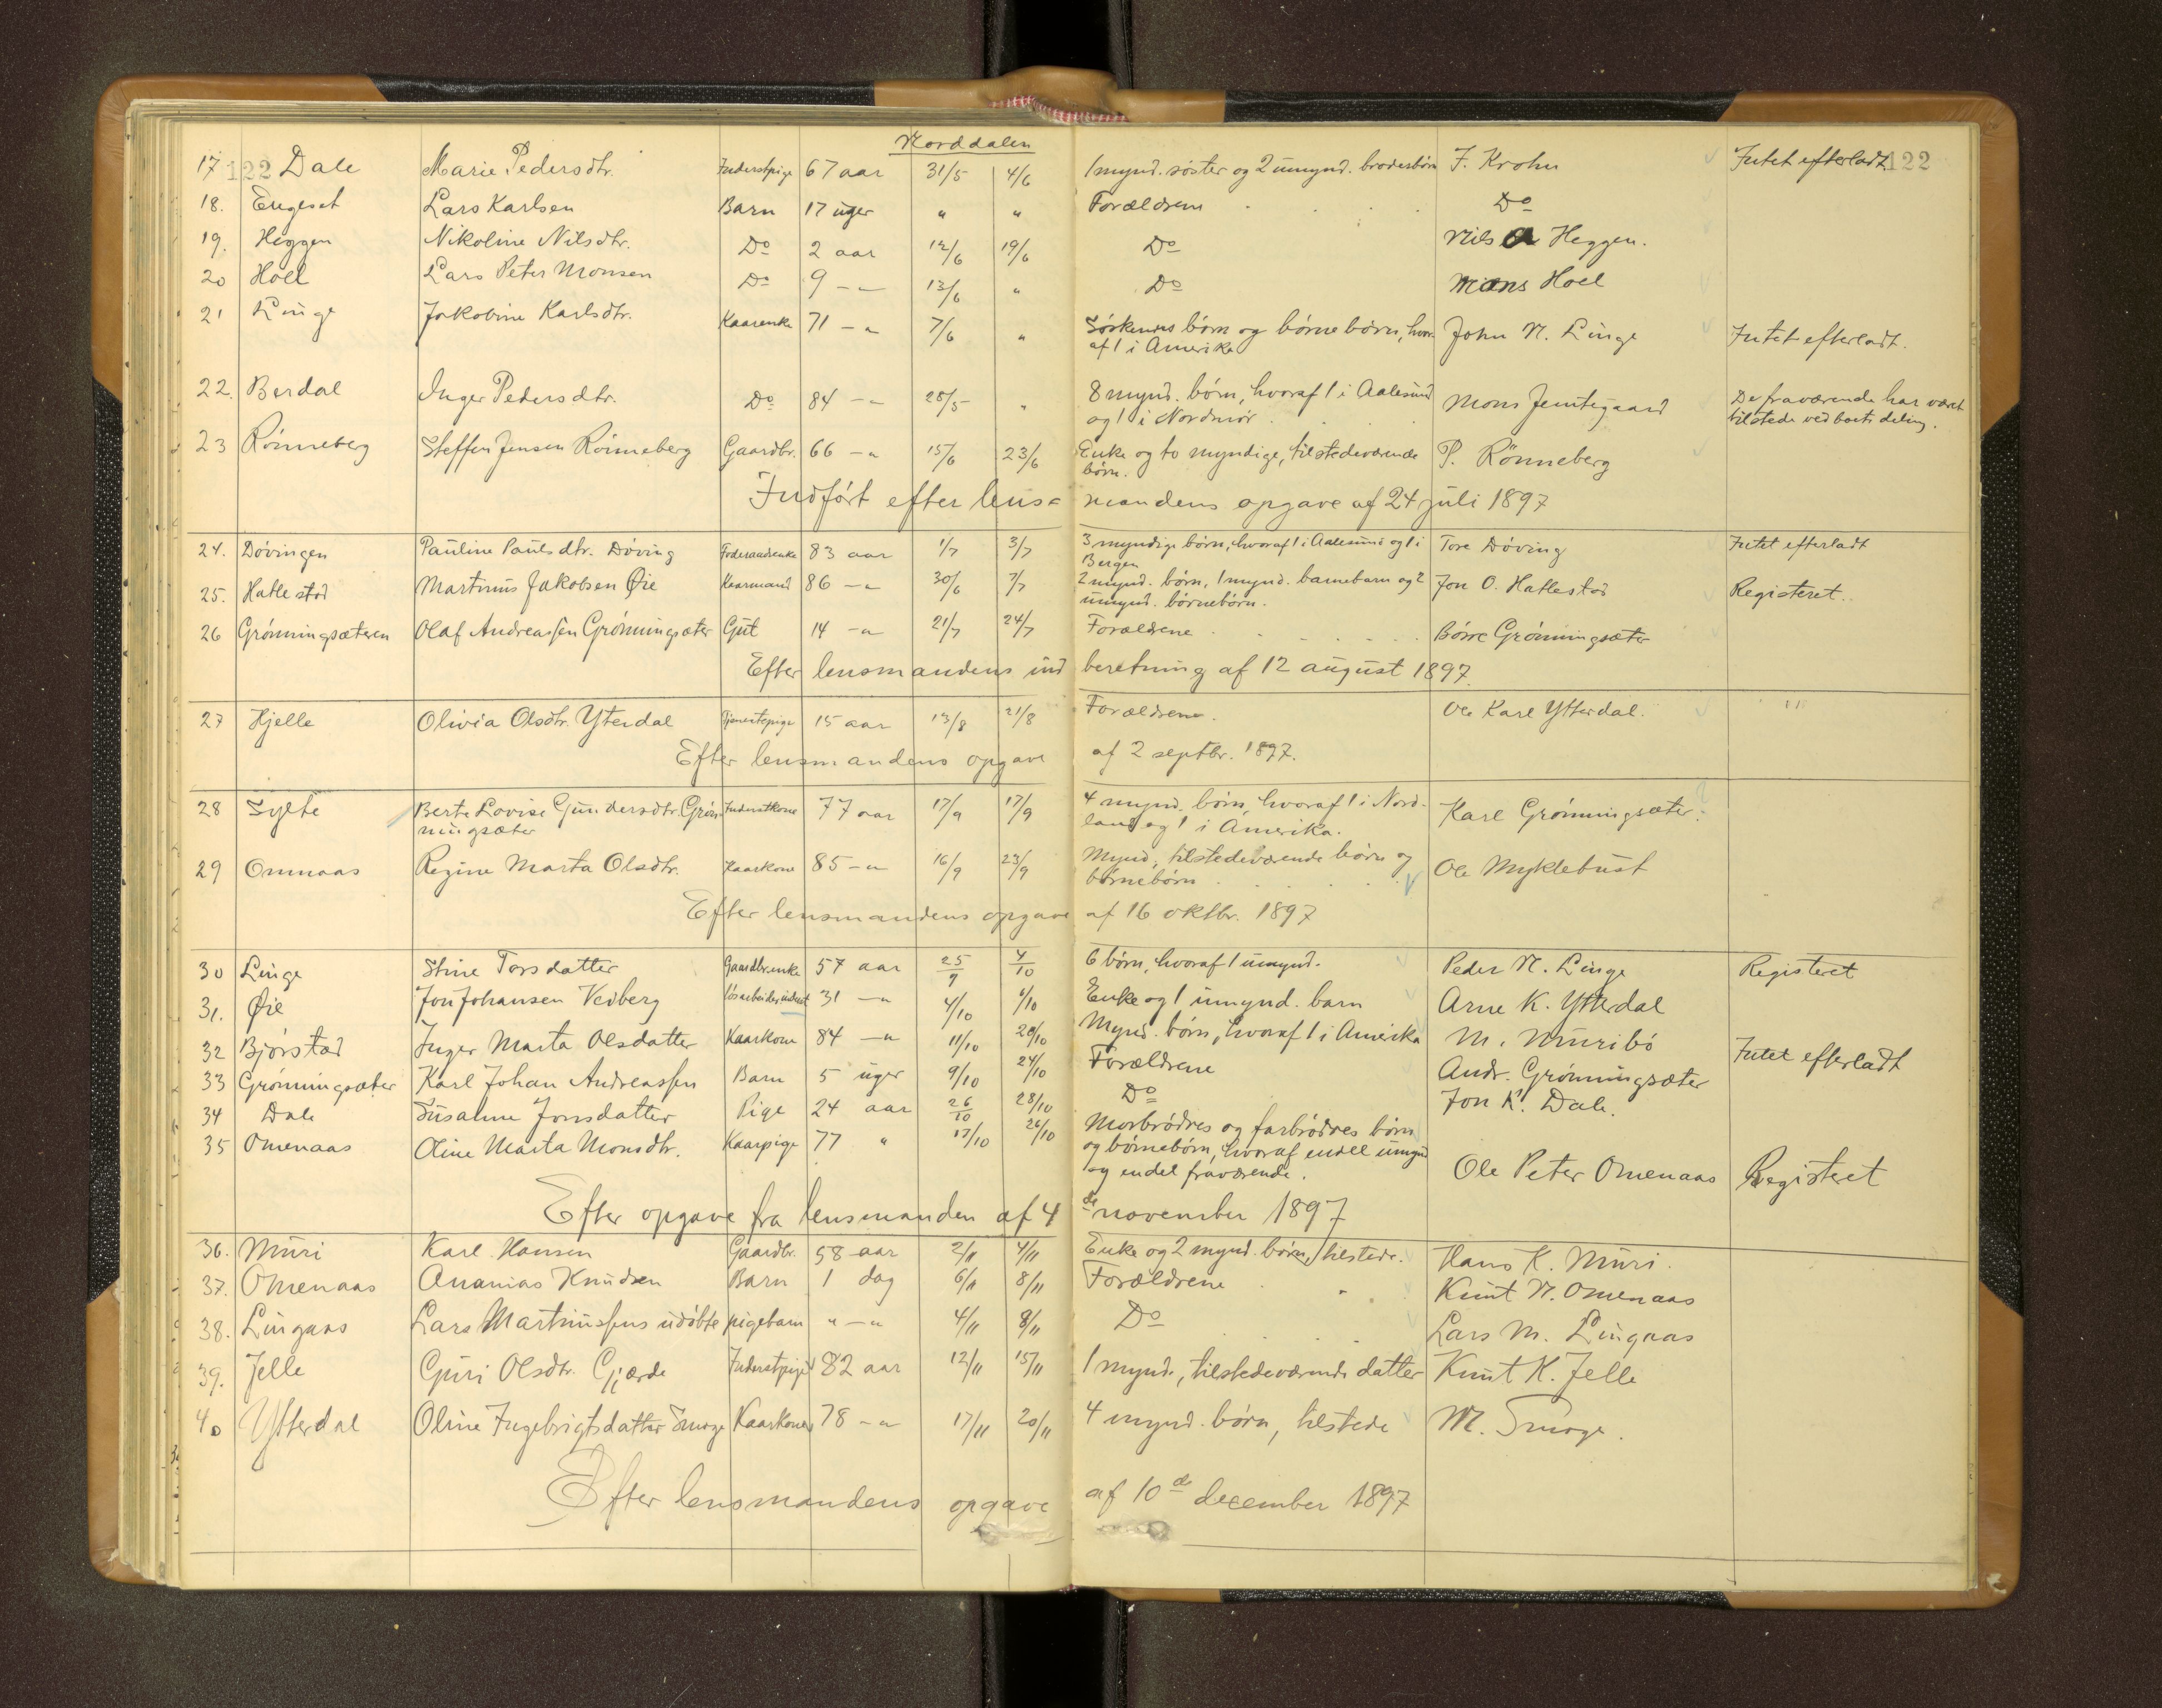 Norddalen
17 122 Dale Marie Pedersdtr. Inderstpige 67 aar 31/5 4/6 1 mynd. søster og 2 umynd. broderbørn J. Krohn Intet efterladt 122
18. Engeset Lars Karlsen Barn 17 uger " " Forældrene Do
19. Heggen Nikoline Nilsdtr. Do 2 aar 12/6 19/6 Do Nils Heggen.
20 Hoel Lars Peter Monsen Do 9 - " 13/6 " Do Mons Hoel
21 Linge Jakobine Karlsdtr. Kaarenke 71 - " 7/6 " Søskendes børn og børnebørn, hvor-
af 1 i Amerika John N. Linge Intet efterladt.
22. Berdal Inger Pedersdtr. Do 84 - " 28/5 " 8 mynd. børn, hvoraf 1 i Aalesund
og 1 i Nordmør Mons Jemtegaard De fraværende har været
tilstede ved boets deling.
23 Rønneberg Steffen Jensen Rønneberg Gaardbr. 66 - " 15/6 23/6 Enke og to myndige, tilstedeværende
børn. P. Rönneberg
Indført efter lens= mandens opgave af 24 juli 1897
24. Døvingen Pauline Paulsdtr. Døving Foderaadsenke 83 aar 1/7 3/7 3 myndige børn, hvoraf 1 i Aalesund og 1 i
Bergen Tore Døving Intet efterladt
25. Hatlestad Martinus Jakobsen Øie Kaarmand 86 - " 30/6 7/7 2 mynd. børn, 1 mynd. barnebarn og 2
umynd. børnebørn. Jon O. Hatlestad Registeret.
26 Grønningsæteren Olaf Andreassen Grønningsæter Gut 14 - " 21/7 24/7 Forældrene Børre Grønningsæter
Efter lensmandens ind beretning af 12 august 1897.
27 Hjelle Olivia Olsdtr. Yterdal Tjenestepige 15 aar 13/8 21/8 Forældrene. Ole Karl Ytterdal.
Efter lensmandens opgave af 2 septbr. 1897.
28 Sylte Berte Lovise Gundersdtr. Grøn-
ningsæter Inderstkone 77 aar 17/9 17/9 4 mynd. børn, hvoraf 1 i Nord-
land og 1 i Amerika. Karl Grønningsæter.
29 Omnaas Regine Marta Olsdtr. Kaarkone 85 - " 16/9 23/9 Mynd., tilstedeværende børn og
børnebørn Ole Myklebust
Efter lensmandens opgave af 16 oktbr. 1897
30 Linge Stine Torsdatter Gaardbr.enke 57 aar 25/9 4/10 6 børn, hvoraf 1 umynd. Peder N. Linge Registeret
31. Øie Jon Johansen Vedberg løsarbeider inderst 31 - " 4/10 6/10 Enke og 1 umynd. barn Arne K. Ytterdal
32 Bjørstad Inger Marta Olsdatter Kaarkone 84 - " 11/10 20/10 Mynd. børn, hvoraf 1 i Amerika M. Muribø
33 Grønningsæter Karl Johan Andreassen Barn 5 uger 9/10 24/10 Forældrene Andr. Grønningsæter Intet efterladt
34 Dale Susanne Jonsdatter Pige 24 aar 26/10 28/10 Do Jon K. Dale.
35 Omenaas Oline Marta Monsdtr. Kaarpige 77 " 17/10 26/10 Morbrødres og farbrødres børn
og børnebørn, hvoraf endel umynd
og endel fraværende. Ole Peter Omenaas Registeret
Efter opgave fra lensmanden af 4 de november 1897
36. Muri Karl Hansen Gaardbr. 58 aar 2/11 4/11 Enke og 2 mynd. børn, tilstede. Hans K. Muri.
37. Omenaas Ananias Knudsen Barn 1 dag 6/11 8/11 Forældrene Knut N. Omenaas
38. Lingaas Lars Martinussens udøbte pigebarn " - " 4/11 8/11 Do Lars M. Lingaas
39. Jelle Guri Olsdtr. Gjærde Inderstpige 82 aar 12/11 15/11 1 mynd., tilstedeværende datter Knut K. Jelle
40 Ytterdal Oline Ingebrigtsdatter Smoge Kaarkone 78 - " 17/11 20/11 4 mynd. børn, tilstede M. Smoge.
Efter lensmandens opgave af 10 de december 1897